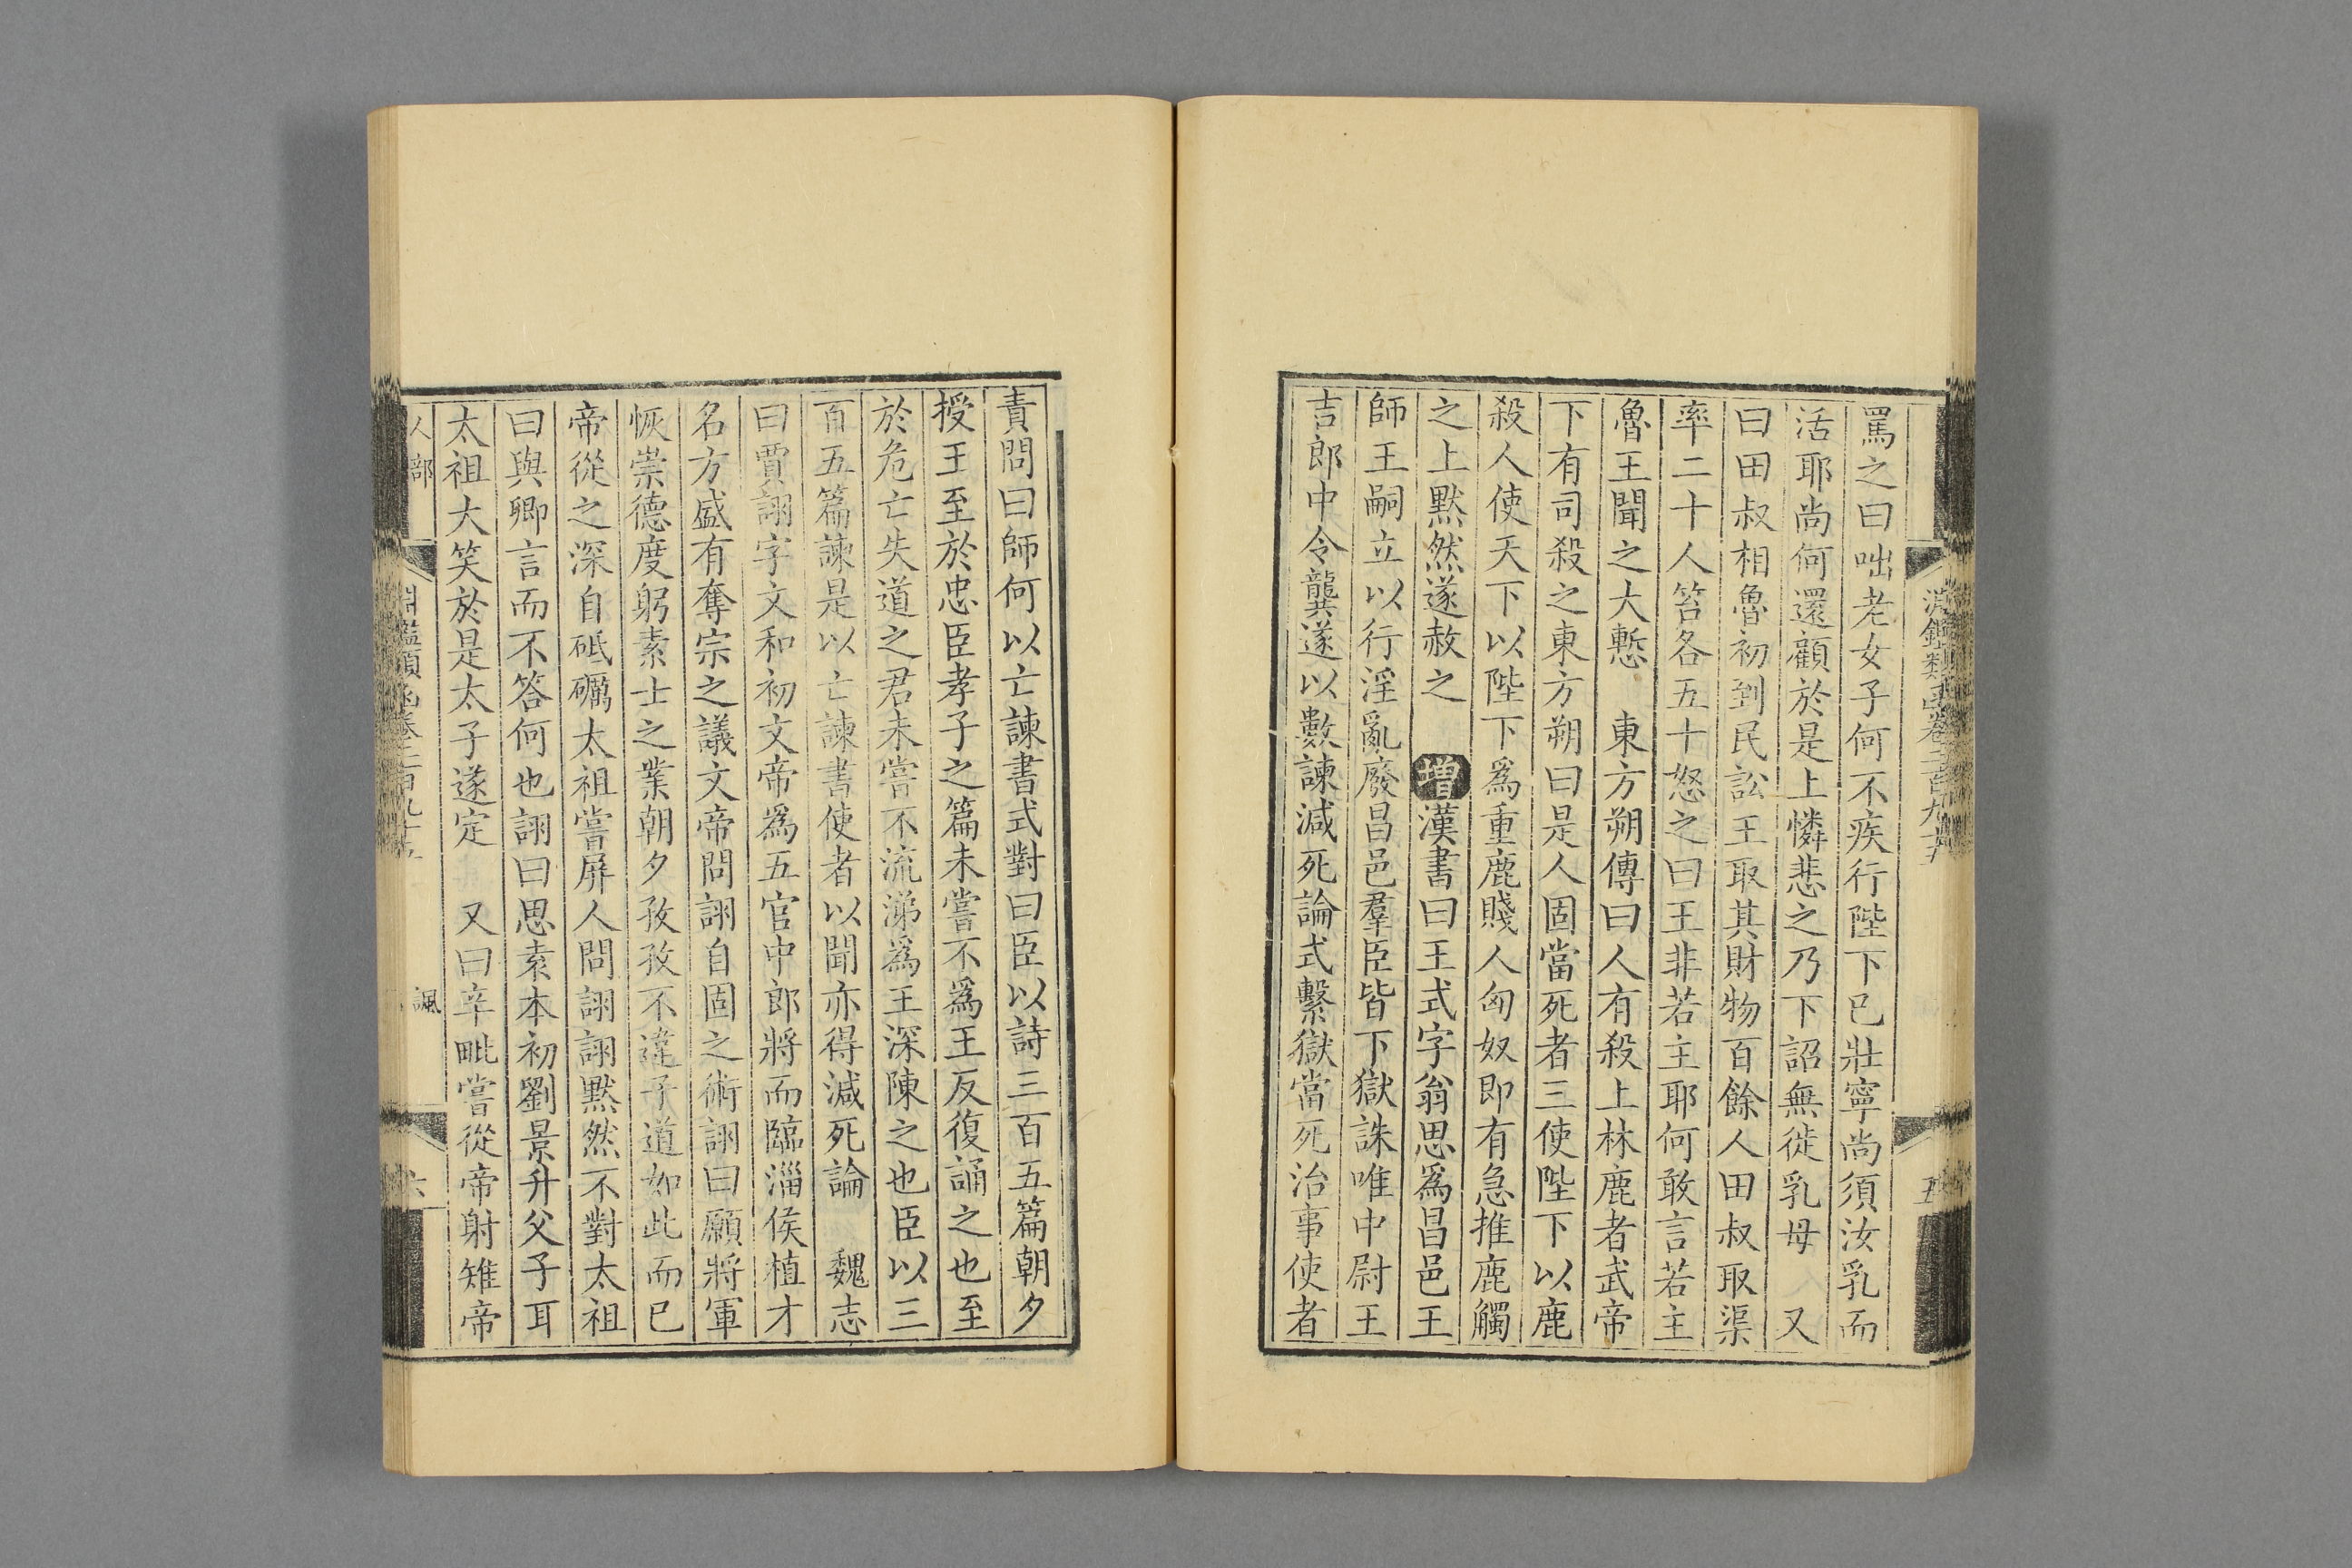 淵鑑類函卷二百九十五
五
罵之曰咄老女子何不疾行陛下已壯寧尚須汝乳而
活耶尚何還顧於是上憐悲之乃下詔無徙乳母　又
曰田叔相魯初到民訟王取其財物百餘人田叔取渠
率二十人笞各五十怒之曰王非若主耶何敢言若主
魯王聞之大慙　東方朔傳曰人有殺上林鹿者武帝
下有司殺之東方朔曰是人固當死者三使陛下以鹿
殺人使天下以陛下爲重鹿賤人匈奴即有急推鹿觸
之上默然遂赦之　增漢書曰王式字翁思爲昌邑王
師王嗣立以行淫亂廢昌邑羣臣皆下獄誅唯中尉王
吉郎中令龔遂以數諫減死論式繫獄當死治事使者
責問曰師何以亡諫書式對曰臣以詩三百五篇朝夕
授王至於忠臣孝子之篇未嘗不爲王反復誦之也至
於危亡失道之君未嘗不流涕爲王深陳之也臣以三
百五篇諫是以亡諫書使者以聞亦得減死論　魏志
曰賈詡字文和初文帝爲五官中郎將而臨淄侯植才
名方盛有奪宗之議文帝問詡自固之術詡曰願將軍
恢崇德度躬素士之業朝夕孜孜不違子道如此而已
帝從之深自砥礪太祖嘗屏人問詡詡默然不對太祖
曰與卿言而不答何也詡曰思袁本初劉景升父子耳
太祖大笑於是太子遂定　又曰辛毗嘗從帝射雉帝
人部
淵鑑類函卷二百九十五
諷
六